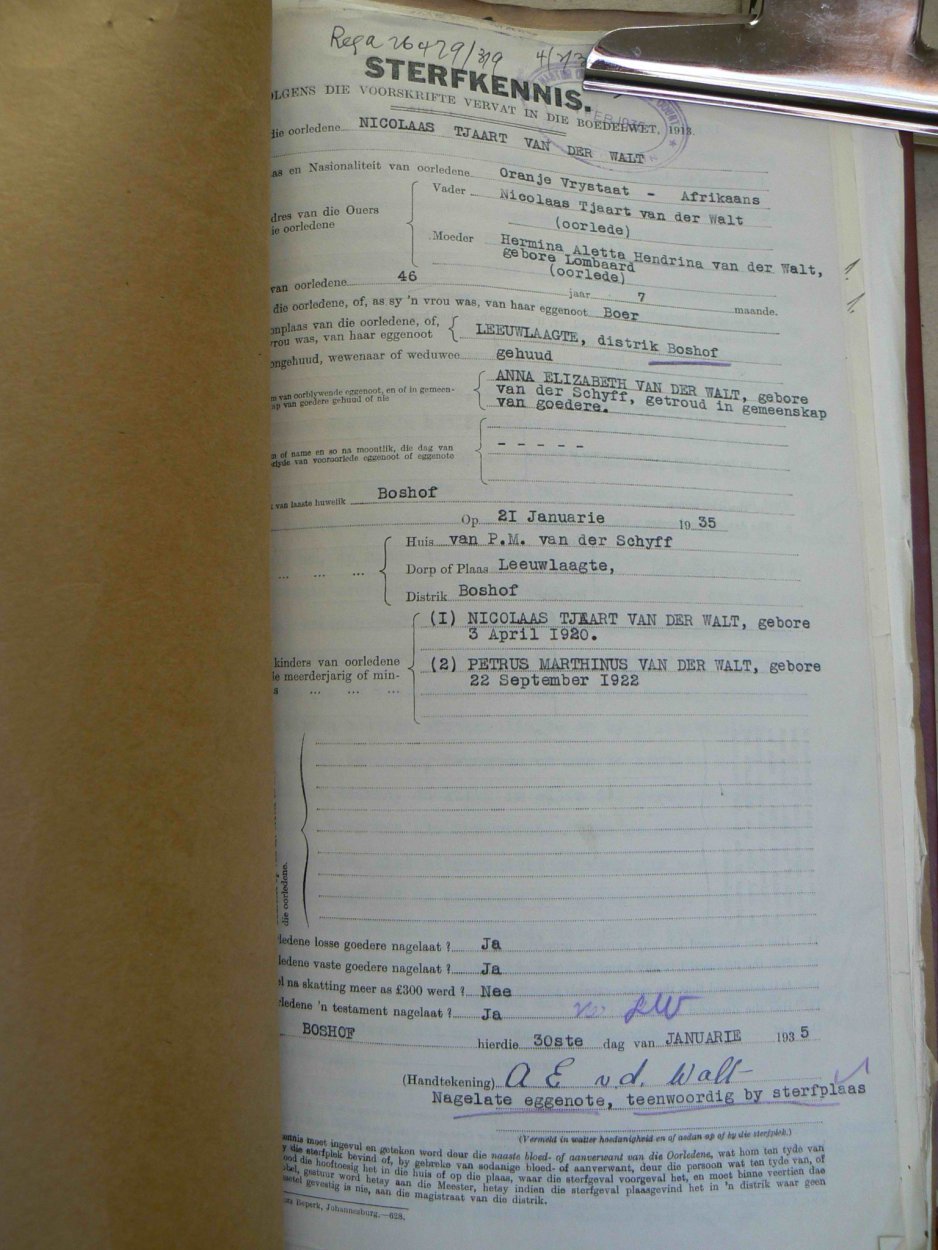 Rega 26429/319 4/2/3
STERFKENNIS.
OLGENS DIE VOORSKRIFTE VERVAT IN DIE BOEDELWET, 1913.
die oorledene NICOLAAS TJAART VAN DER WALT
as en Nasionaliteit van oorledene Oranje Vrystaat - Afrikaans
dres van die Ouers
ie oorledene
Vader Nicolaas Tjaart van der Walt
(oorlede)
Moeder Hermina Aletta Hendrina van der Walt,
gebore Lombaard
(oorlede)
van oorledene 46 jaar 7 maande.
die oorledene, of, as sy 'n vrou was, van haar eggenoot Boer
onplaas van die oorledene, of,
rou was, van haar eggenoot
LEEUWLAAGTE, distrik Boshof
ongehuud, wewenaar of weduwee gehuud
m van oorblywende eggenoot, en of in gemeen-
ap van goedere gehuud of nie
ANNA ELIZABETH VAN DER WALT, gebore
van der Schyff, getroud in gemeenskap
van goedere.
m of name en so na moontlik, die dag van
rlyde van vooroorlede eggenoot of eggenote
- - - - -
van laaste huwelik Boshof
Op 2I Januarie 19 35
... ... ...
Huis van P.M. van der Schyff
Dorp of Plaas Leeuwlaagte,
Distrik Boshof
kinders van oorledene
le meerderjarig of min-
s ... ... ...
(I) NICOLAAS TJAART VAN DER WALT, gebore
3 April I920.
(2) PETRUS MARTHINUS VAN DER WALT, gebore
22 September I922
die oorledene.
ledene losse goedere nagelaat ? Ja
ledene vaste goedere nagelaat ? Ja
el na skatting meer as £300 werd ? Nee
rledene 'n testament nagelaat ? Ja
BOSHOF hierdie 30ste dag van JANUARIE 193 5
(Handtekening) A E v.d. Walt
Nagelate eggenote, teenwoordig by sterfplaas
(Vermeld in watter hoedanigheid en of aedan op of by die sterfplek.)
ennis moet ingevul en geteken word deur die naaste bloed- of aanverwant van die Oorledene, wat hom ten tyde van
y die sterfplek bevind of, by gebreke van sodanige bloed- of aanverwant, deur die persoon wat ten tyde van, of
ood die hooftoesig het in die huis of op die plaas, waar die sterfgeval voorgeval het, en moet binne veertien dae
bel, gestuur word hetsy aan die Meester, hetsy indien die sterfgeval plaasgevind het in 'n distrik waar geen
setel gevestig is nie, aan die magistraat van die distrik.
Beperk, Johannesburg.—628.